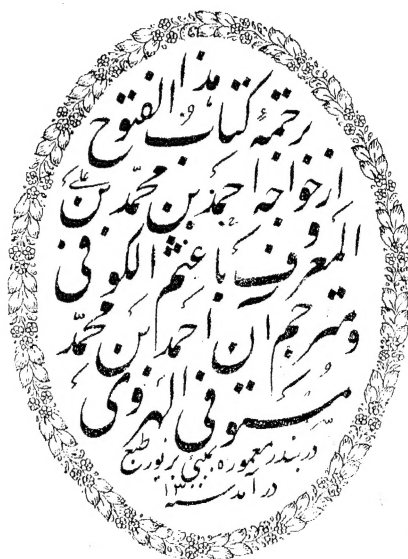 هذا
ترجمهٔ کتاب الفتوح
از خواجه احمد بن محمد بن علی
المعروف باعثم الکوفی
و مترجم آن احمد ابن محمد
مستوفی الهروی
در بندر معموره بمبئی بزیور طبع
در آمد سنه ۱۳۰۰